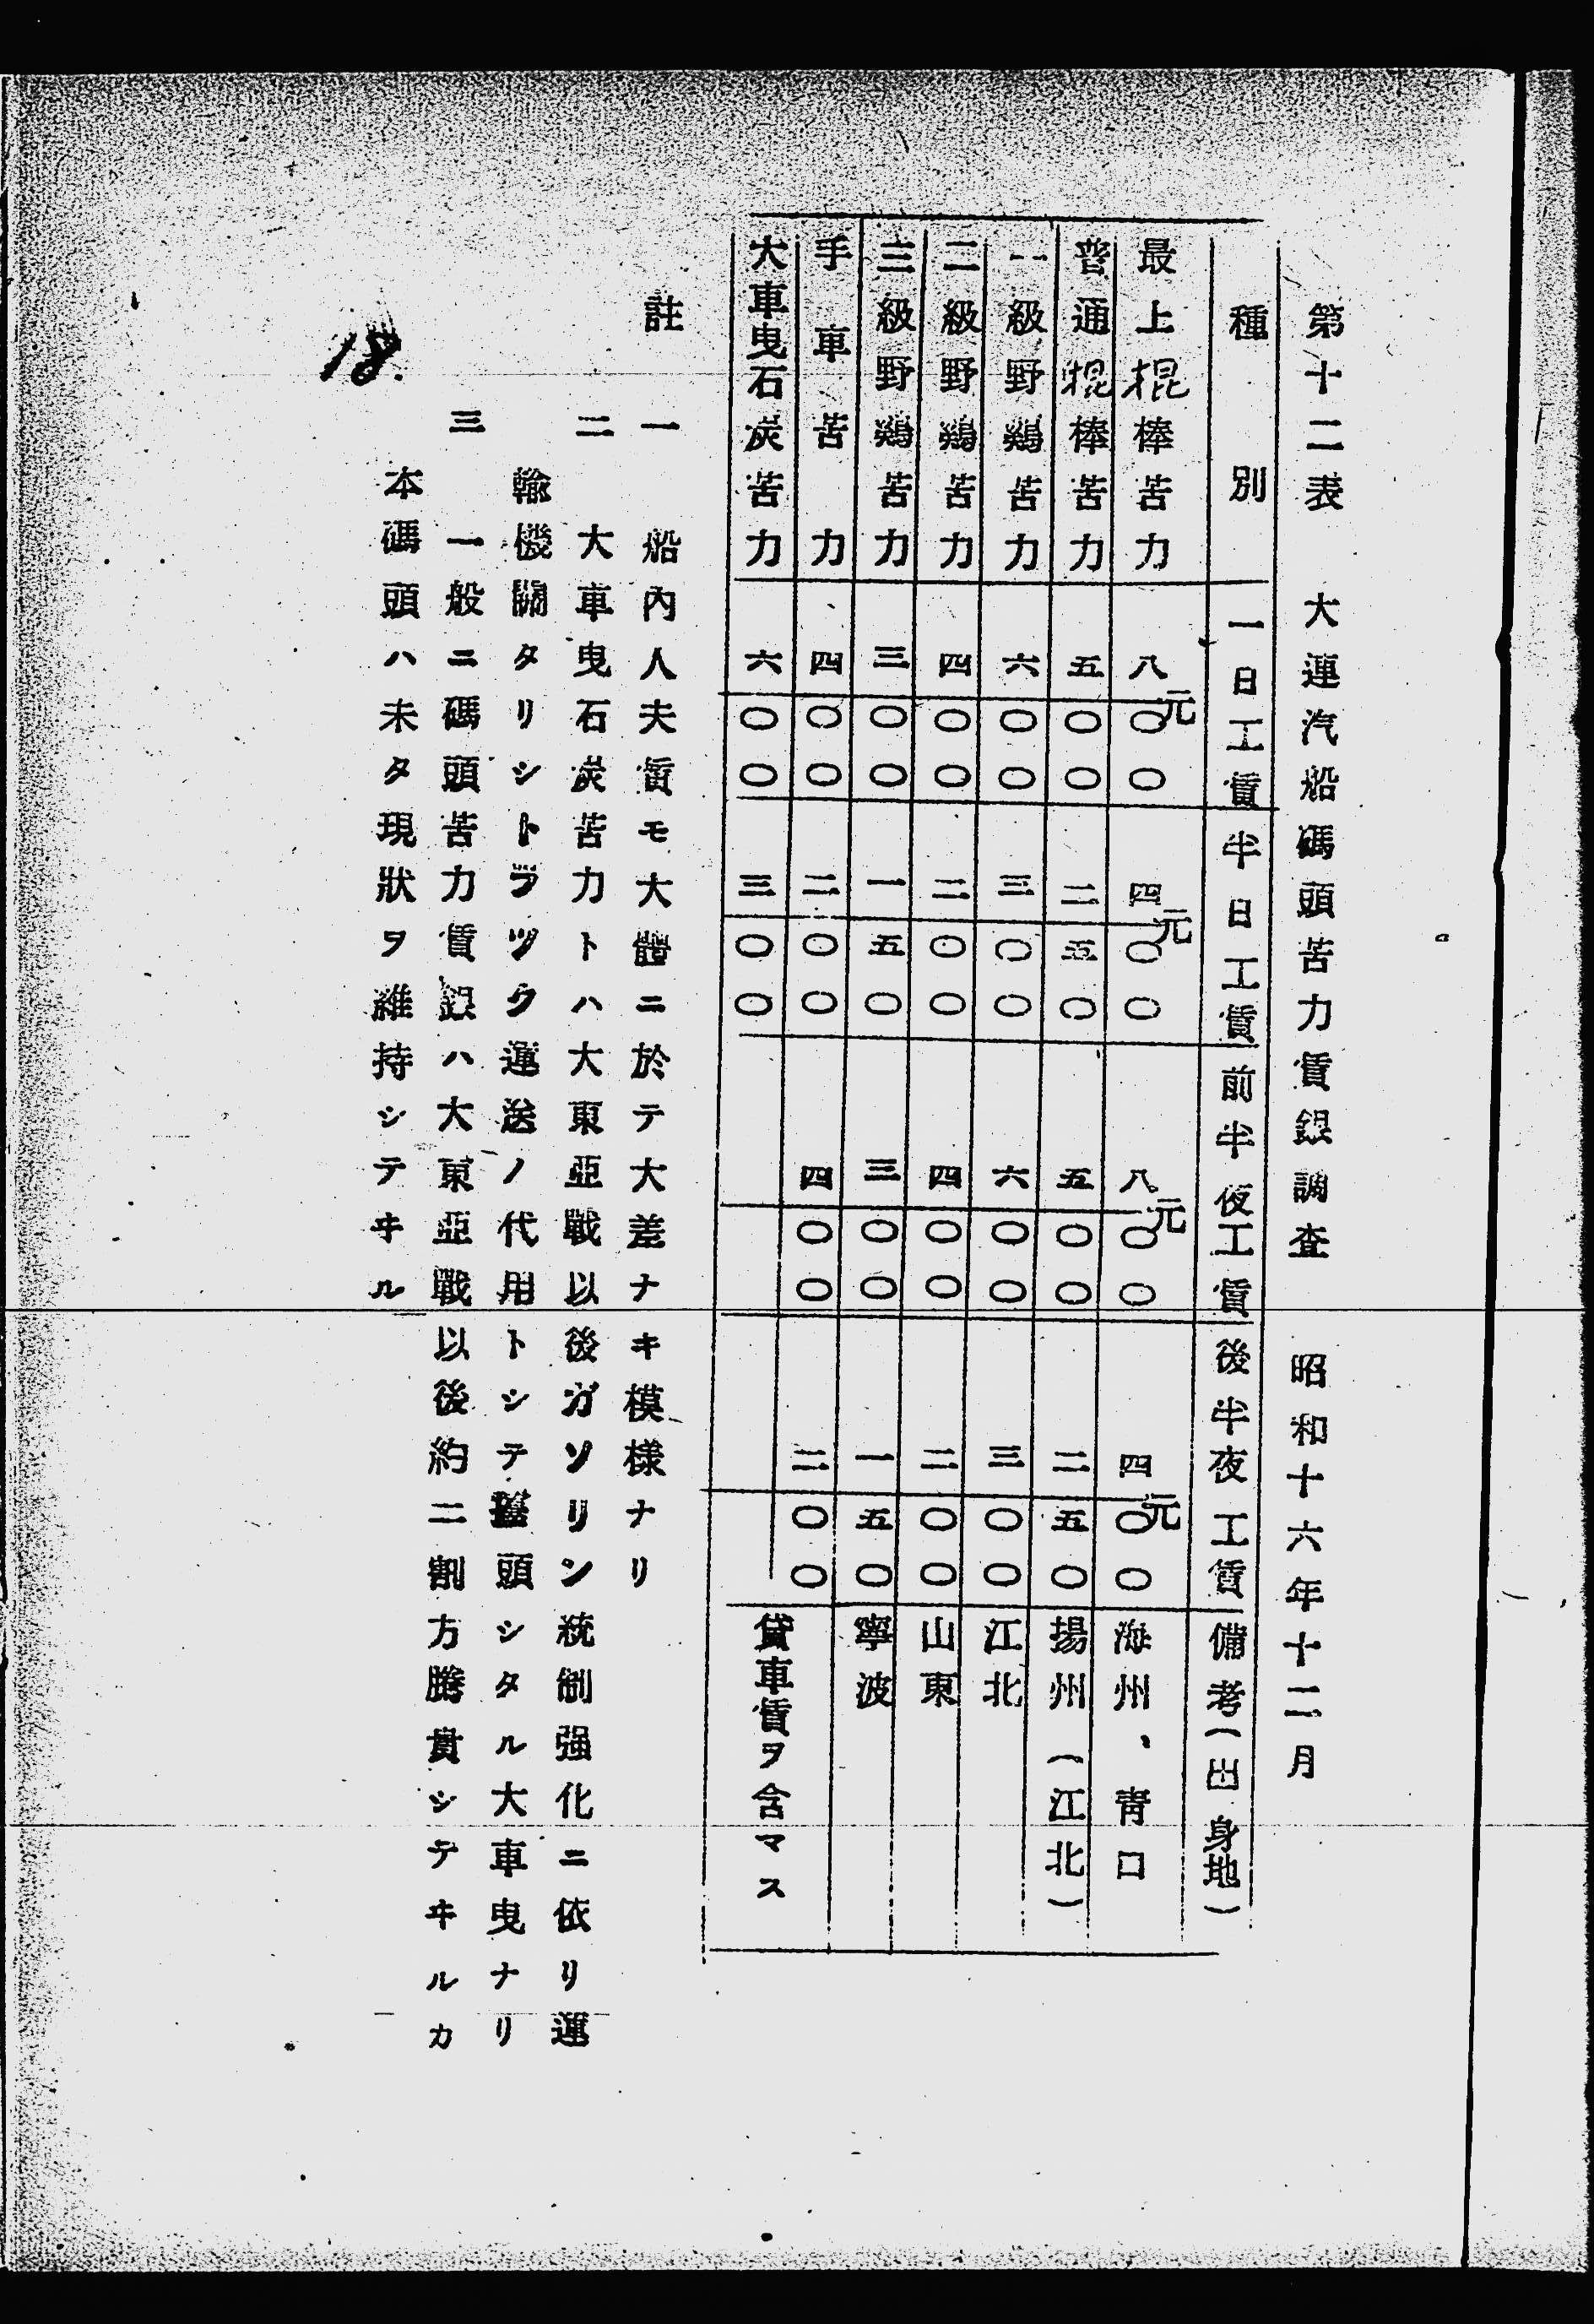 第十二表　大連汽船碼頭苦力賃銀調査　昭和十六年十二月
種別　一日工賃　半日工賃　前半夜工賃　後半夜工賃　備考(出身地)
最上棍棒苦力　八元〇〇　四元〇〇　八元〇〇　四元〇〇　海州、青口
普通棍棒苦力　五〇〇　二五〇　五〇〇　二五〇　揚州(江北)
一級野鷄苦力　六〇〇　三〇〇　六〇〇　三〇〇　江北
二級野鷄苦力　四〇〇　二〇〇　四〇〇　二〇〇　山東
三級野鷄苦力　三〇〇　一五〇　三〇〇　一五〇　寧波
手車苦力　四〇〇　二〇〇　四〇〇　二〇〇
大車曳石炭苦力　六〇〇　三〇〇　貸車賃ヲ含マス
註　一　船內人夫賃モ大體ニ於テ大差ナキ模様ナリ
二　大車曳石炭苦力トハ大東亞戰以後ガソリン統制强化ニ依リ運
輸機關タリシトラツク運送ノ代用トシテ擡頭シタル大車曳ナリ
三　一般ニ碼頭苦力賃銀ハ大東亞戰以後約二割方騰貴シテヰルカ
本碼頭ハ未タ現狀ヲ維持シテヰル
18.